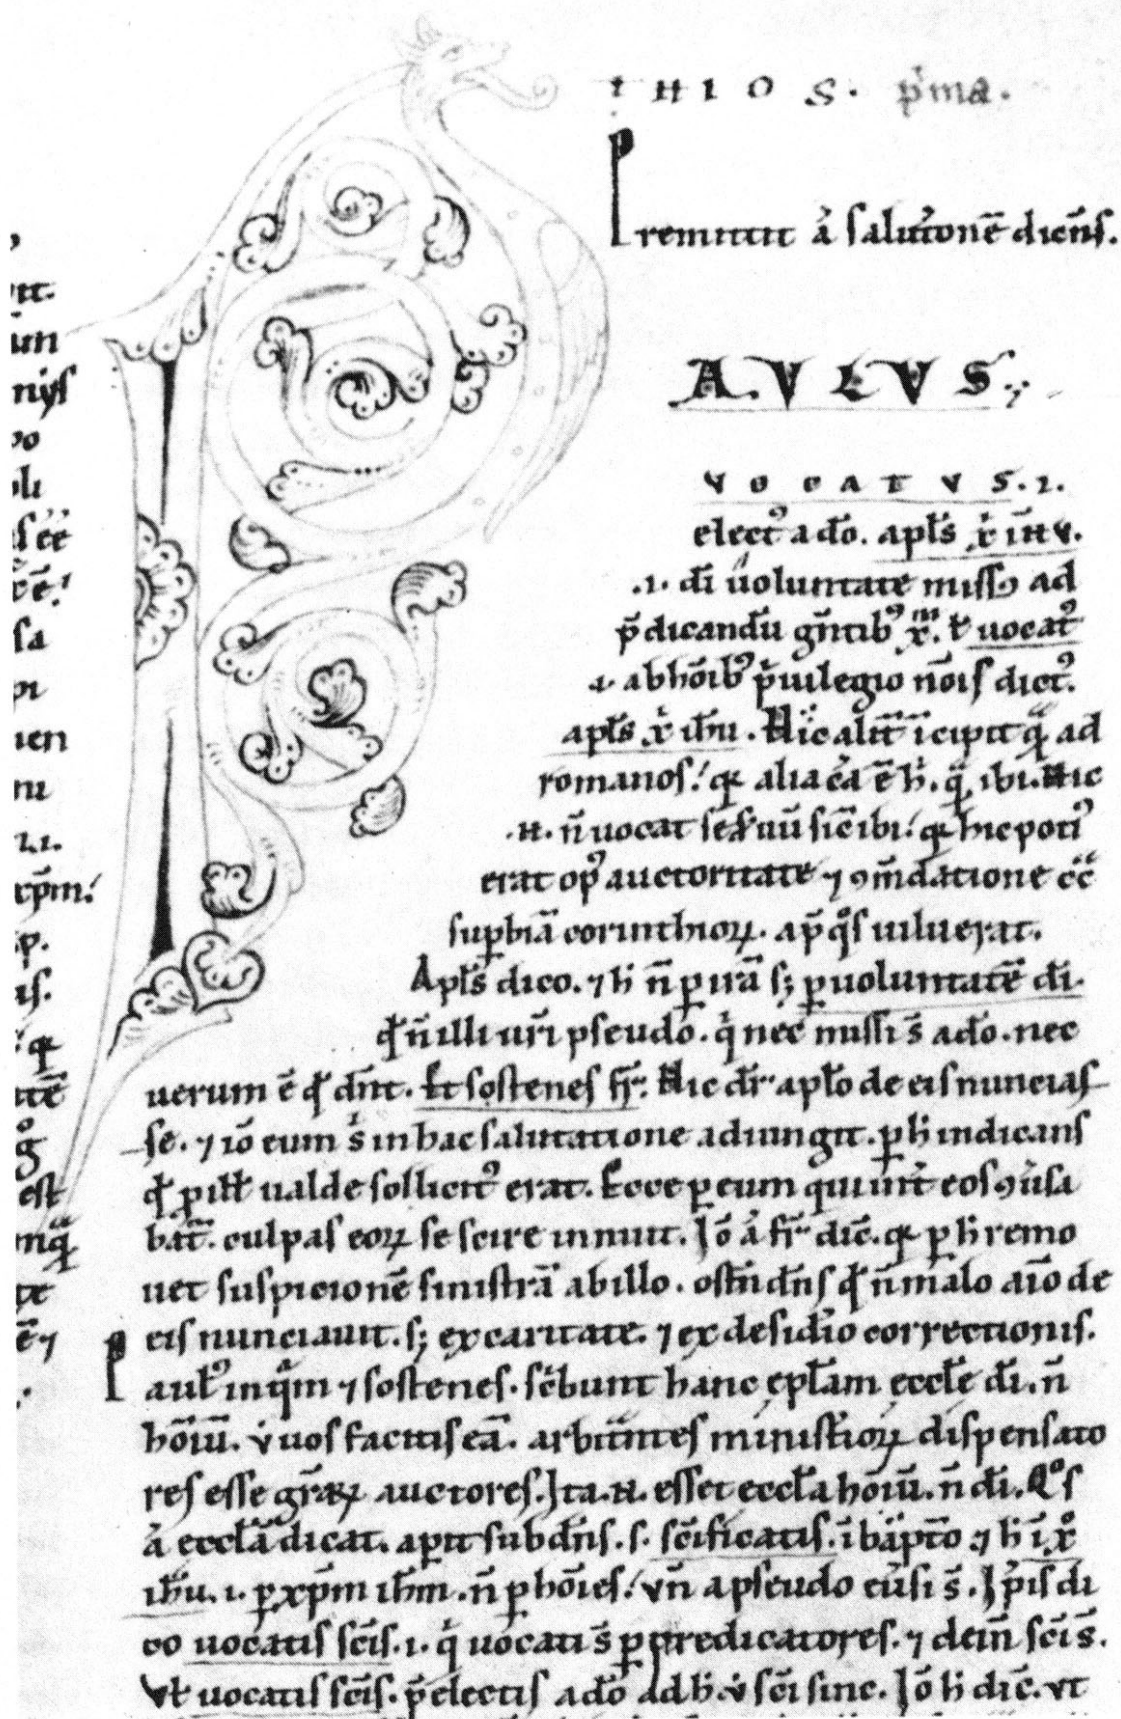 THIOS. p'ma.
Premittit a̛ saluťonē dicēns.
AVLVS.
VOCATVS.i.
elect᾽ a dō. apl̄s x̛ iħu.
.i. dī uoluntate miss᾽ ad
p̄dicandū gn̄tib᾽ x̄m. ł uocat᾽
.i. ab hōib᾽ p̛uilegio nōis dict᾽.
apl̄s x̛ iħu. Hic alit̄ īcipit q̄ ad
romanos. ꝙ alia cā ē h̛. q̄ ibi. Hic
.n. n̄ uocat se seruū sic̄ ibi. ꝙ hic poti᾽
erat op᾽ auctoritate ⁊ ꝯm̄datione
suꝑbiā corinthioꝝ. ap̄ q̊s uiluerat.
Apl̄s dico. ⁊ h̛ n̄ ꝑ irā sꝫ ꝑ uoluntatē dī.
qđ n̄ illi ur̄i pseudo. q̛ nec missi s̄ a dō. nec
uerum ē qđ dn̄t. Et sostenes fr̄. Hic dr̄ aplo de eis nuncias
se. ⁊ iō eum s̛ in hac salutatione adiungit. ꝑ h̛ indicans
qđ ꝑ ill̄ ualde sollicit᾽ erat. Ecce ꝑ eum qui int̛ eos ꝯưsa
bat̄. culpas eoꝝ se scire innuit. Iō a̛ fr̄ dic̄. ꝙ ꝑ h̛ remo
uet suspicionē sinistrā ab illo. ostn̄dn̄s qđ n̄ malo aīo de
eis nunciauit. sꝫ ex caritate. ⁊ ex desid̛io correctionis.
Paul᾽ inqͣm ⁊ sostenes. sc̛bunt hanc ep̄lam eccl̄e dī. n̄
hōiū. ů uos facitis eā. arbit̄ntes ministroꝝ dispensato
res esse gr̄aꝝ auctores. Ita .n. esset eccl̄a hōiū. n̄ dī. Q̊s
a̛ eccl̄ā dicat. aꝑit subdn̄s. s. sc̄ificatis. ī bapt̄o ⁊ h̛ ī x̊
iħu .i. ꝑ xp̄m iħm. n̄ ꝑ hōies. vn̄ a pseudo eưsi s̄. Ip̛is di
co uocatis sc̄is .i. q̛ uocati s̄ ꝑ predicatores. ⁊ dein̄ sc̄i s̄.
Vł uocatis sc̄is. p̄electis a dō ad h̛. ů sc̄i sint. Iō h̛ dic̄. vt